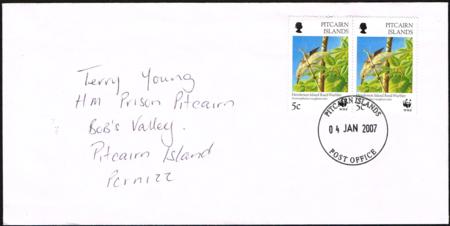 Terry Young
HM Prison Pitcairn
Bob's Valley.
Pitcairn Island
Pcrn1zz
PITCAIRN
ISLANDS
PITCAIRN
ISLANDS
Henderson Island Reed-Warbler
Henderson Island Reed-Warbler
5c
WWF
5c
WWF
PITCAIRN ISLANDS
04 JAN 2007
POST OFFICE